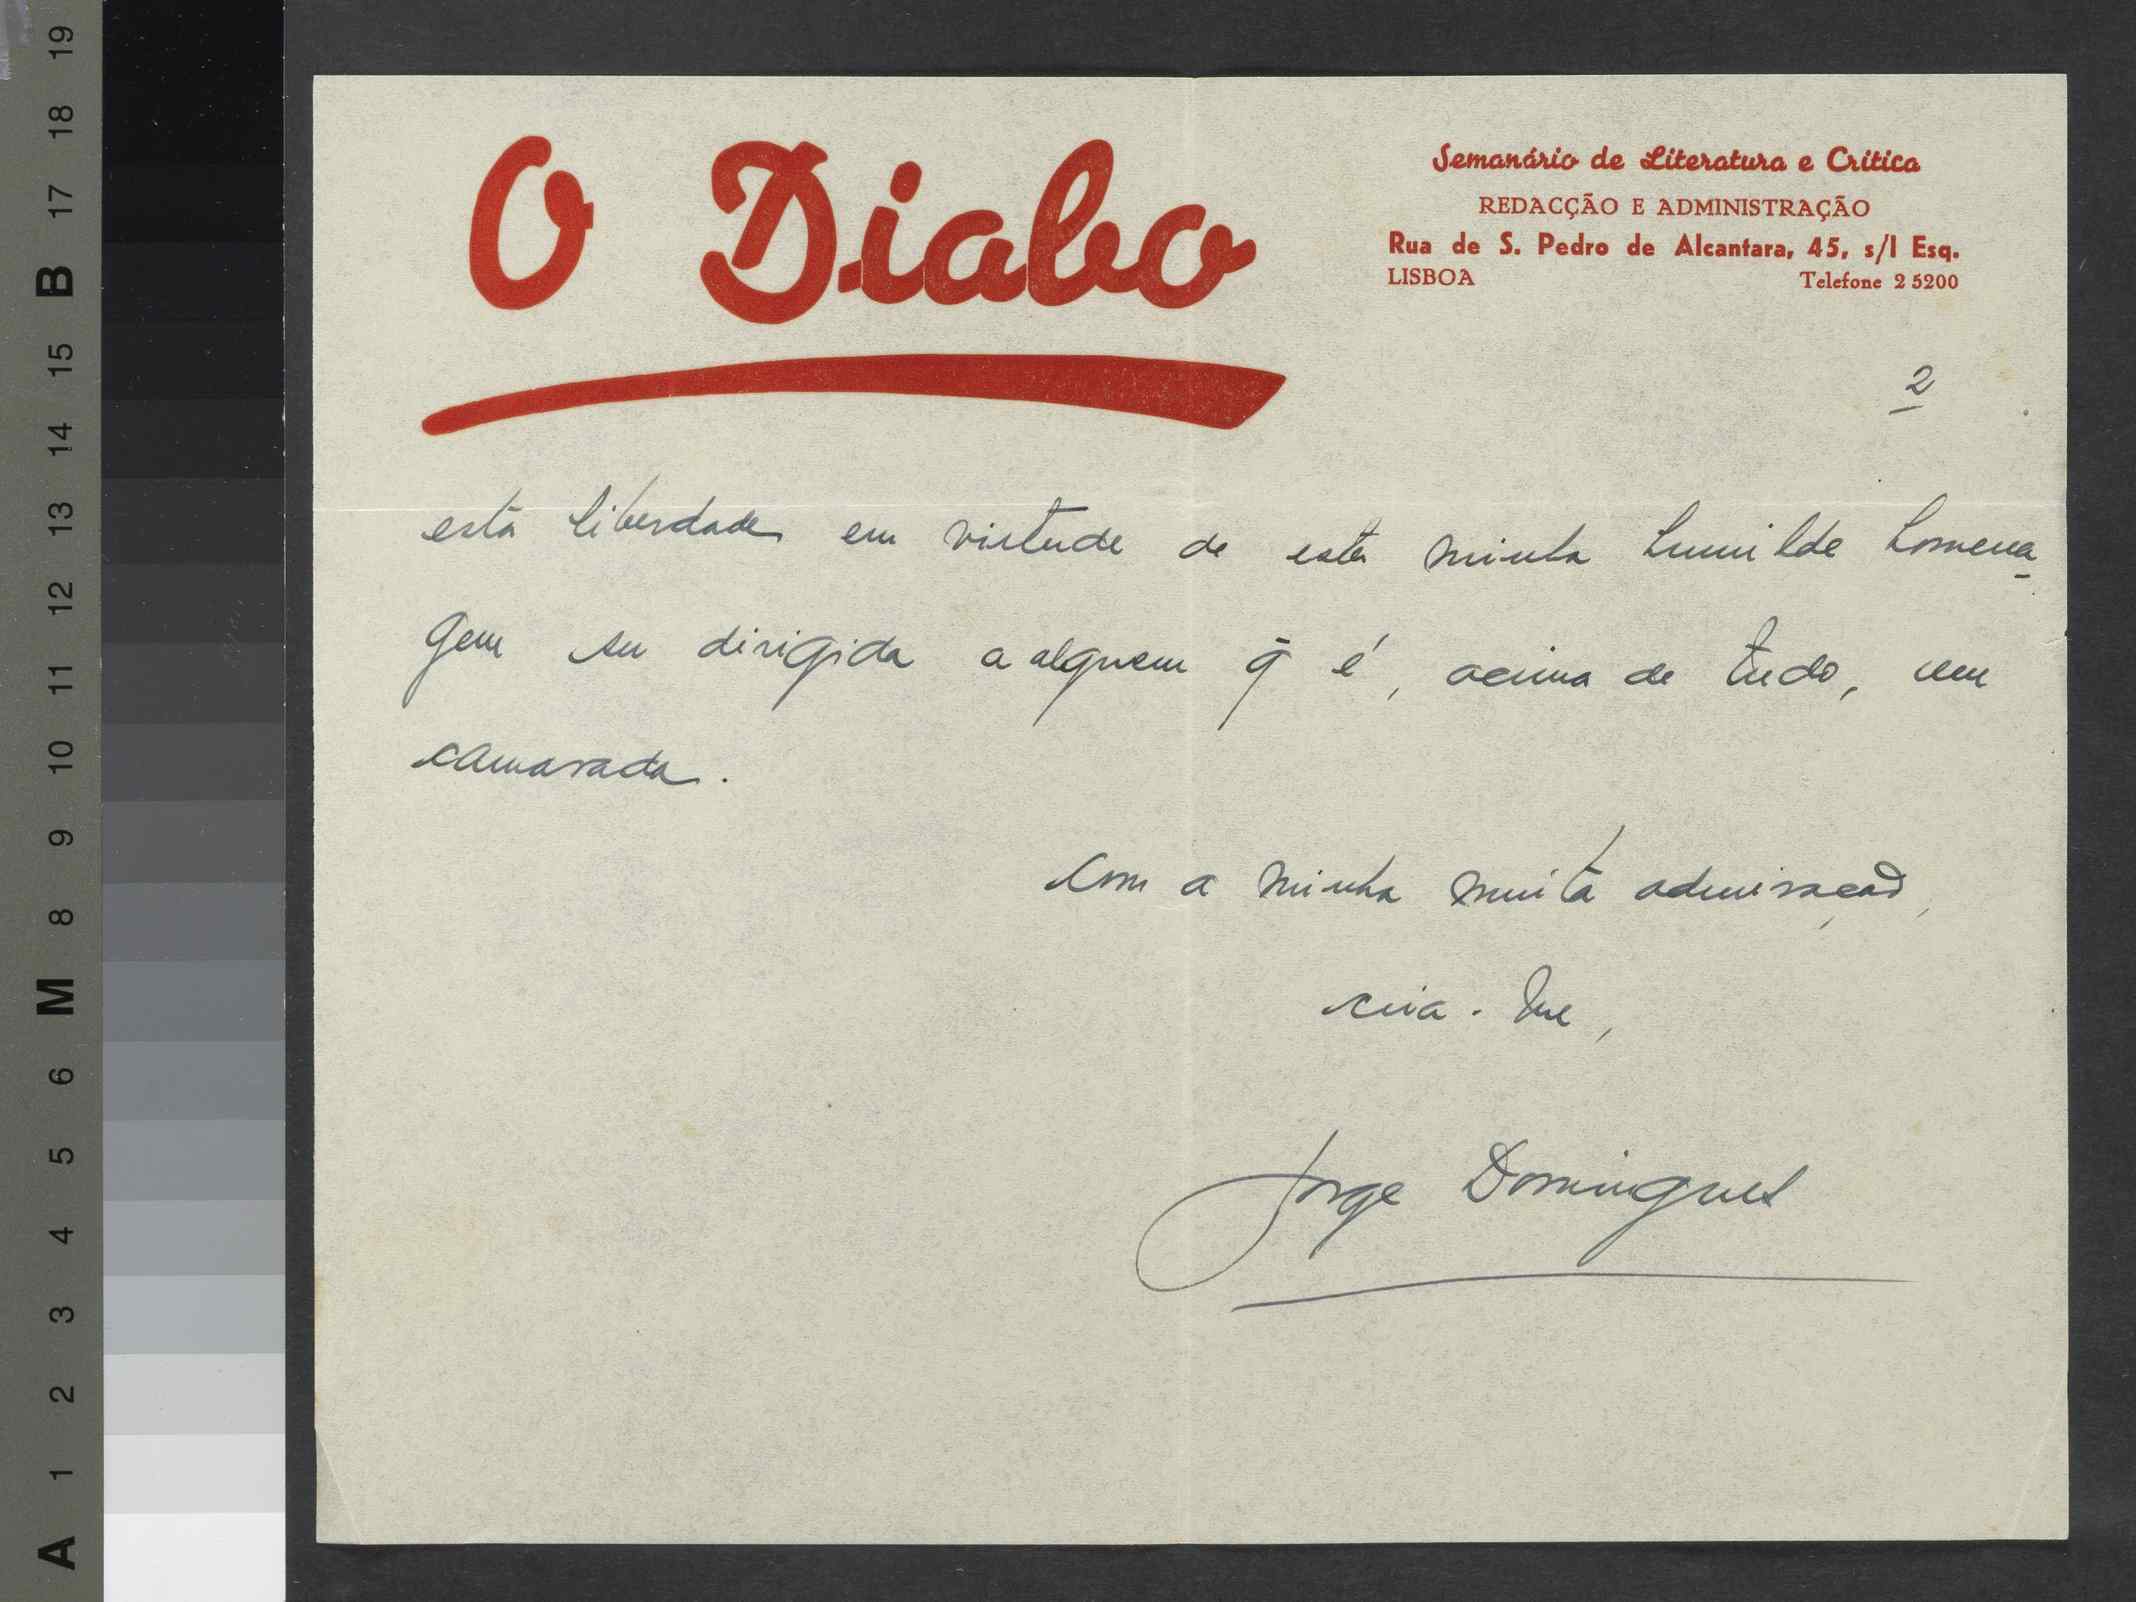 O Diabo
Semanário de Literatura e Critica
REDACÇÃO E ADMINISTRAÇÃO
Rua de S. Pedro de Alcantara, 45, s/l Esq.
LISBOA Telefone 2 5200
2
esta liberdade em virtude de esta minha humilde homena-
gem ser dirigida a alguem q̄ é, acima de tudo, um
camarada.
Com a minha muita admiração,
creia-me,
Jorge Domingues
A 1 2 3 4 5 6 M 8 9 10 11 12 13 14 15 B 17 18 19